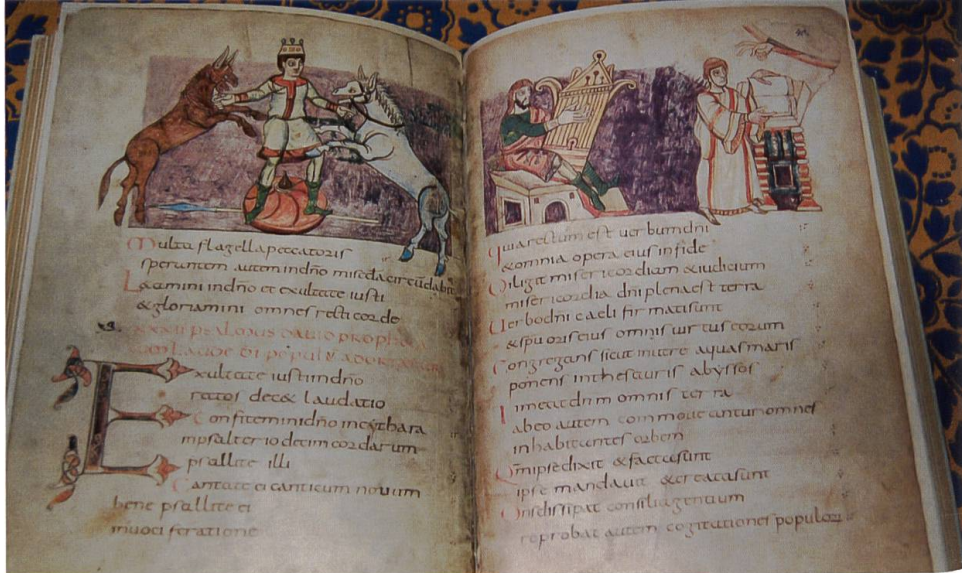 Multa flagella peccatoris
sperantem autem indño miseda circũdabit
Laetamini indño et exultate iusti
& gloriamini omnes recti corde
XXXII psalmus david propheta
Exultate iusti indño
rectos dec& laudatio
Confitemini dño in cythara
inpsalterio decim cordarum
psallite illi
Cantate ei canticum novum
bene psallite ei
invociferatione
Quia rectum est verbum dni
& omnia opera eius in fide
Diligit misericordiam & iudicium
misericordia dni plena est terra
Verbo dni caeli firmati sunt
& spu oris eius omnis uirtus eorum
Congregans sicut in utre aquas maris
ponens in thesauris abyssos
Timeat dnm omnis terra
abeo autem commoueantur omnes
inhabitantes orbem
Qm̃ ipse dixit & facta sunt
ipse mandauit & creata sunt
Dns dissipat consilia gentium
reprobat autem cogitationes populorũ